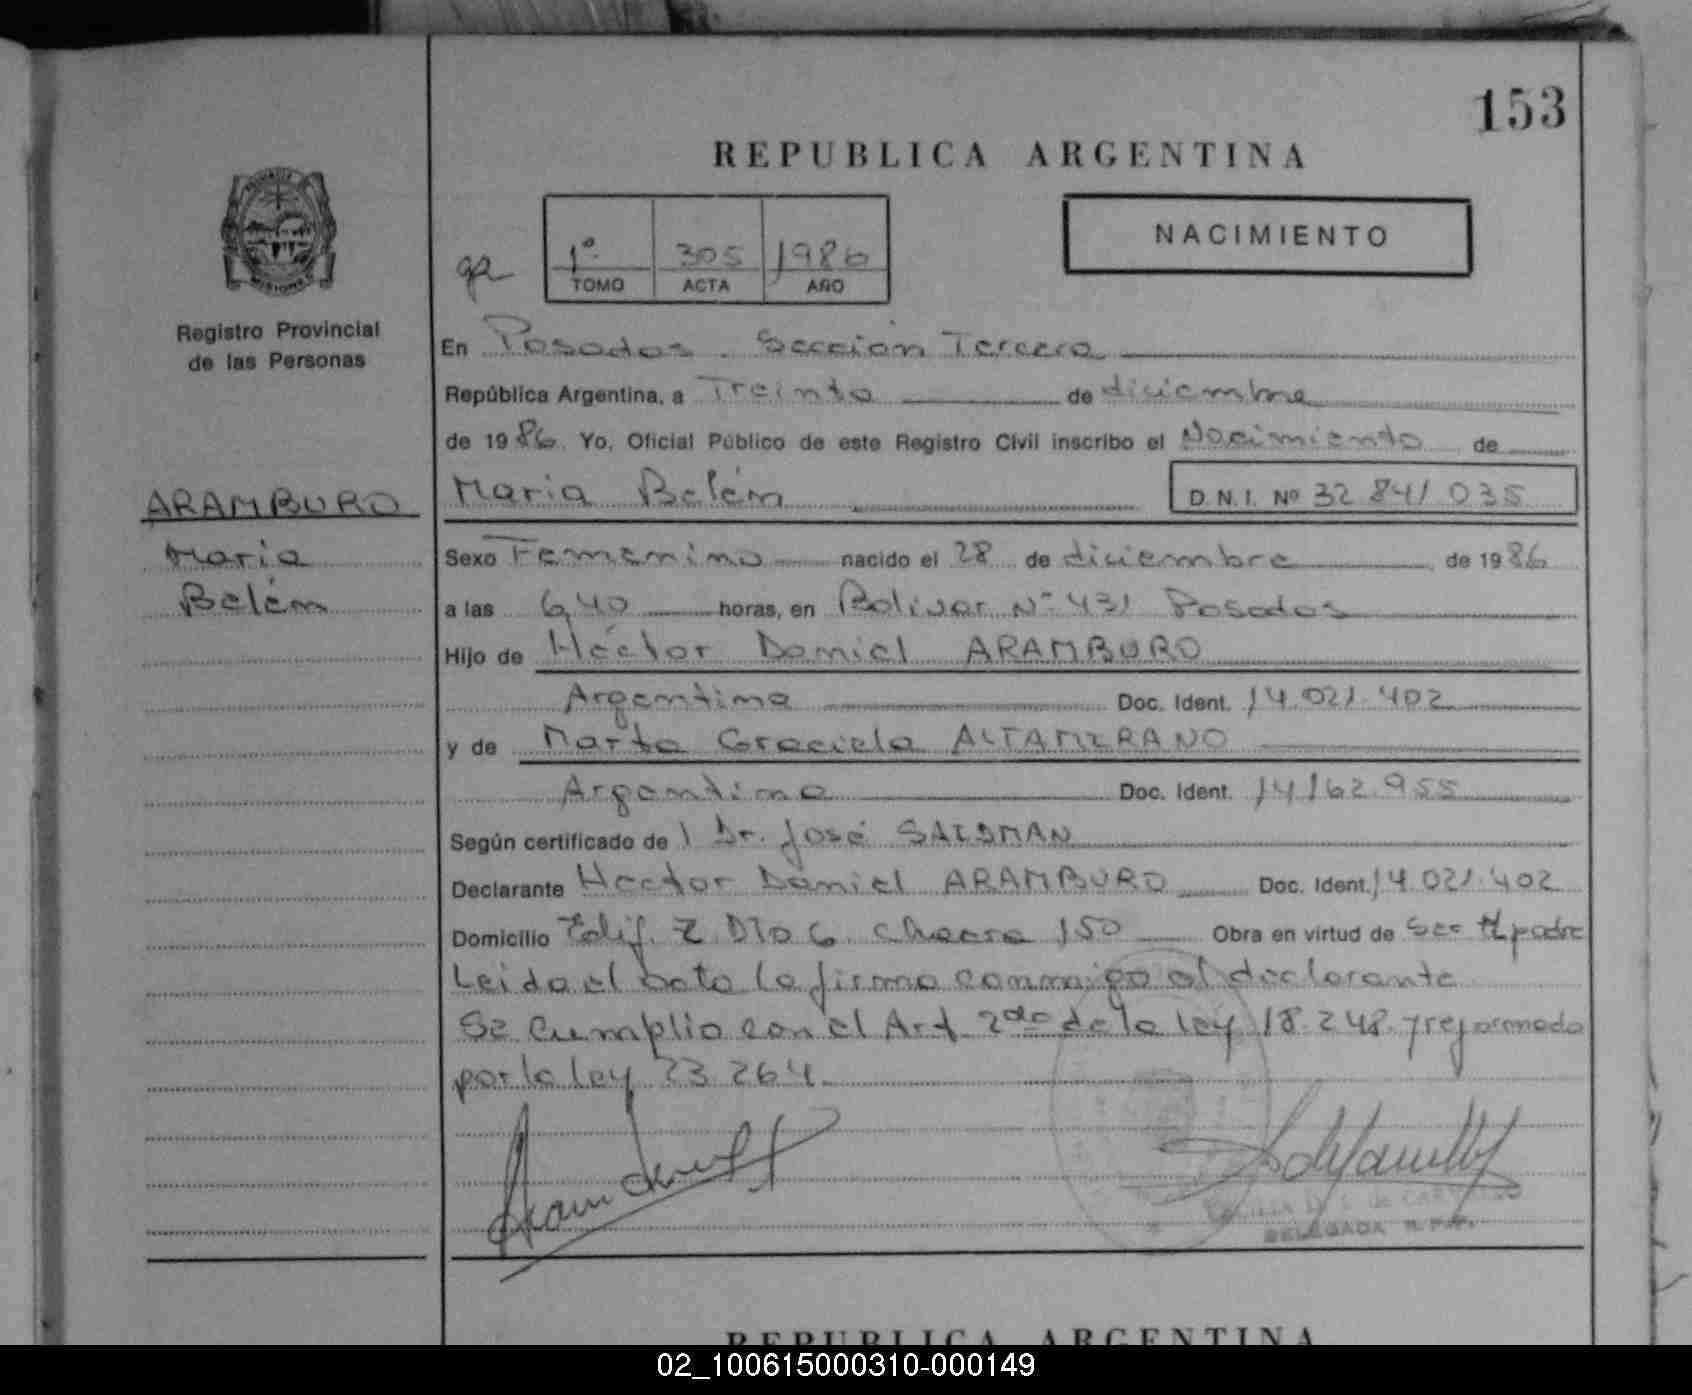 153
REPUBLICA ARGENTINA
1º 305 1986
TOMO ACTA AÑO
NACIMIENTO
PROVINCIA
MISIONES
Registro Provincial
de las Personas
ARAMBURO
Maria
Belén
En Posadas. Sección Tercera
República Argentina, a Treinta de diciembre
de 1986. Yo, Oficial Público de este Registro Civil inscribo el Nacimiento de
Maria Belén D.N.I. Nº 32 841 035
Sexo Femenino nacido el 28 de diciembre de 1986
a las 6,40 horas, en Bolivar Nº 431 Posadas
Hijo de Héctor Daniel ARAMBURO
Argentino Doc. Ident. 14.021.402
y de Marta Graciela ALTAMIRANO
Argentina Doc. Ident. 14162.955
Según certificado de l Dr. José SALOMAN
Declarante Hector Daniel ARAMBURO Doc. Ident. 14.021.402
Domicilio Edif. Z Dto 6. chacra 150 Obra en virtud de Ser El padre
Leida el acta la firma conmigo el declarante
Se Cumplio con el Art 2do de la ley 18.248. y reformada
por la ley 23 264.
DELEGADA R.P.P.
REPUBLICA ARGENTINA
02_100615000310-000149